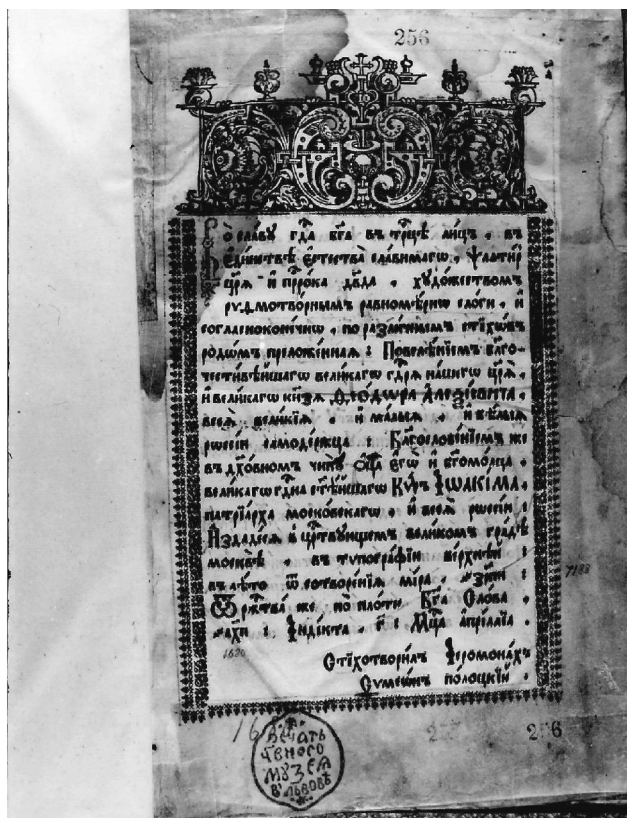 256
Во славу гда бга въ трцѣ лицъ, въ
единствѣ естества славимагѡ, ѱалтирь
цря и пррока двда, художествомъ
рѵѳмотворнымъ равномѣрнѡ слоги, и
согласноконечнѡ, по различнымъ стіхѡвъ
родѡмъ преложенная: Повелѣніемъ благо-
честивѣйшагѡ великагѡ гдря нашегѡ цря,
и великагѡ кнзя Ѳеодѡра Алеѯіевича,
всеѧ великія, и малыя, и бѣлыя
рѡссіи самодержца: Благословеніемъ же
въ дховномъ чинѹ оца егѡ и бгомолца,
великагѡ гдна стѣйшагѡ Кѵръ Іѡакіма,
патріарха московскагѡ, и всеѧ рѡссіи:
Издадеся в црствующемъ великомъ градѣ
москвѣ, въ тѵпографіи верхнѣй:
въ лѣто ѿ сотворенія міра, ҂зрпи:
Ѿ ржтва же по плоти Бга Слова,
҂ахп: Індікта, г: Мца апрілліа.
7188
1680
Стіхотворилъ Іеромонахъ
Сѵмеѡнъ полоцкій.
256
Печать
музея
въ Львовѣ